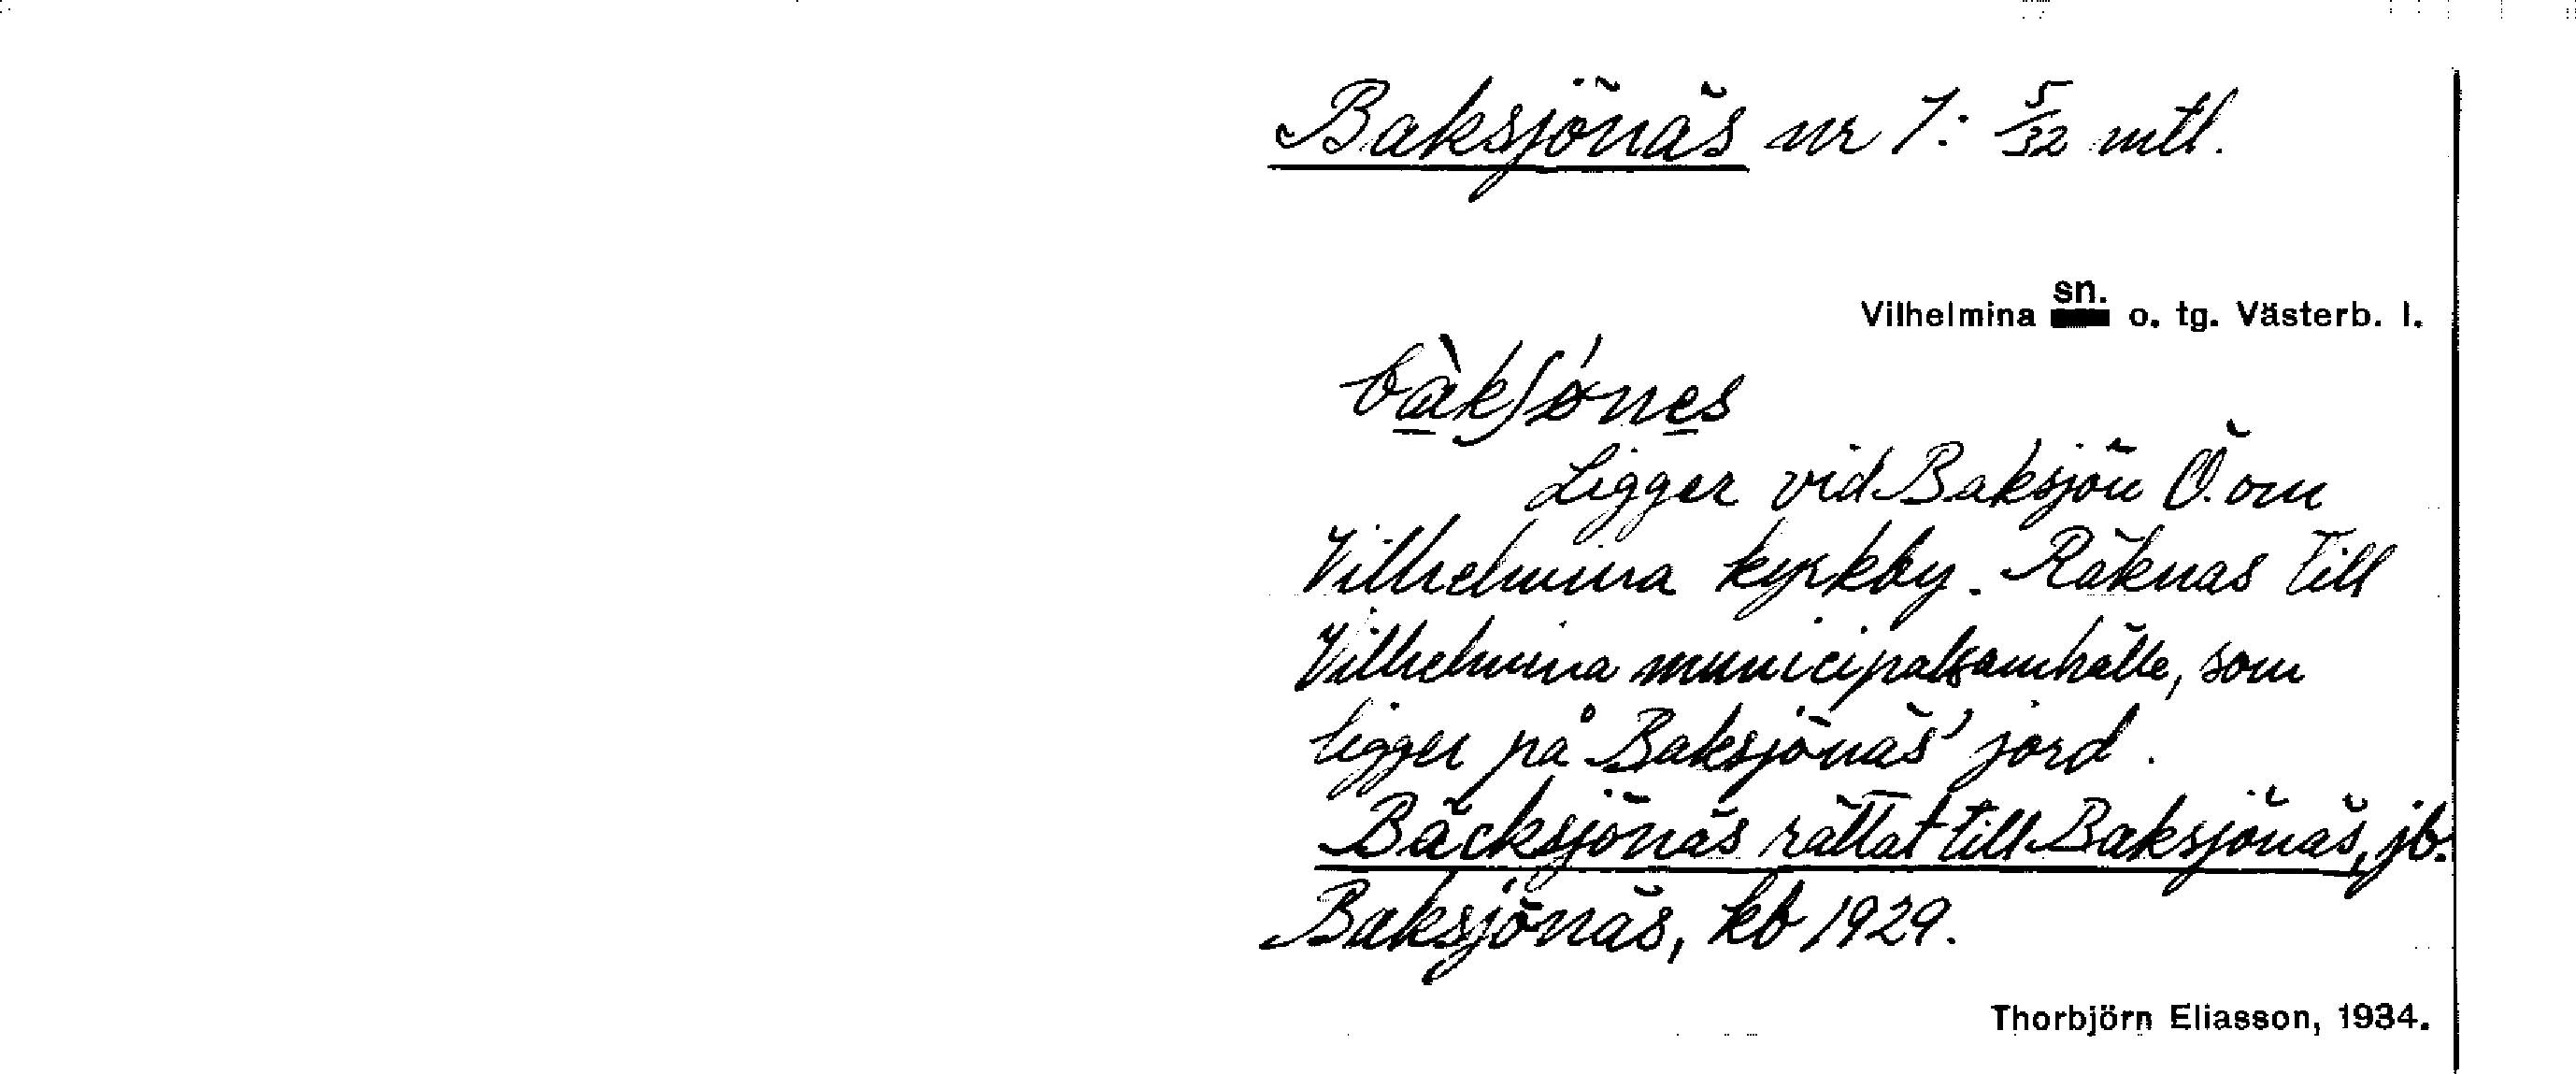 Baksjönäs nr 1: 5/32 mtl.
Vilhelmina sn. o. tg. Västerb. l.
bàkʃónes
Ligger vid Baksjön Ö. om
Vilhelmina kyrkby. Räknas till
Vilhelmina municipalsamhälle, som
ligger på Baksjönäs' jord.
Bäcksjönäs rättat till Baksjönäs, jb.
Baksjönäs, kb 1929.
Thorbjörn Eliasson, 1934.